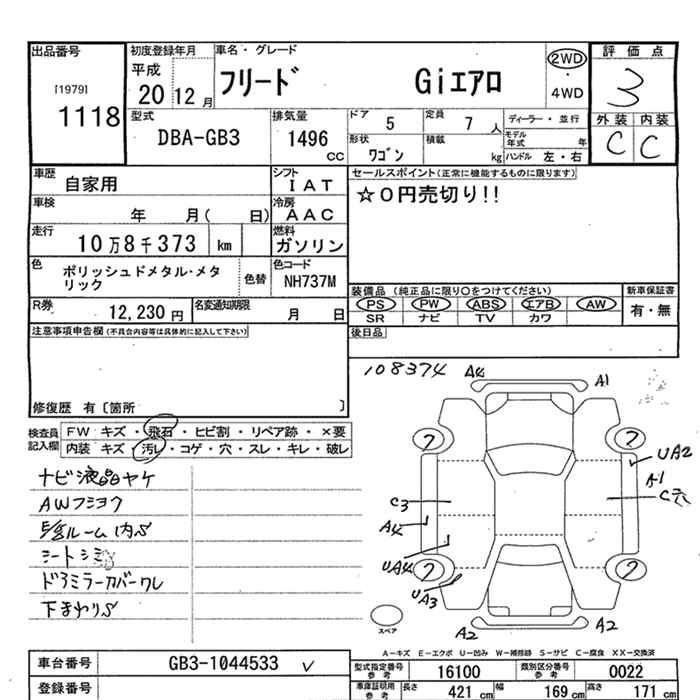 出品番号 初度登録年月 車名・グレード 評価点
[1979] 平成 2WD
1118 20 12月 フリード Giエアロ ・ 3
4WD
型式 排気量 ドア 5 定員 7人 ディーラー・並行 外装 内装
DBA-GB3 1496 cc 形状 ワゴン 積載 kg モデル年式 年 C C
ハンドル 左・右
車歴 自家用 シフト IAT セールスポイント(正常に機能するものに限ります)
車検 年 月( 日) 冷房 AAC ☆0円売切り!!
走行 10万8千373 km 燃料 ガソリン
色 ポリッシュドメタル・メタリック 色替 色コード NH737M
装備品(純正品に限り○をつけてください) 新車保証書
R券 12,230円 名変通知期限 月 日 PS PW ABS エアB AW 有・無
SR ナビ TV カワ
注意事項申告欄(不具合内容等は具体的に記入して下さい) 後日品
修復歴 有〔箇所 〕
検査員記入欄 FW キズ・飛石・ヒビ割・リペア跡・×要
内装 キズ・汚レ・コゲ・穴・スレ・キレ・破レ
ナビ液晶ヤケ
AWフシヨク
ルーム内S
シートシミ
ドアミラーカバーワレ
下まわりS
108374
A4 A1
UA2
A1
C3 C
A4
UA4
UA3
A2 A2
スペア
A-キズ E-エクボ U-凹み W-補修跡 S-サビ C-腐食 XX-交換済
車台番号 GB3-1044533 型式指定番号 参考 16100 類別区分番号 参考 0022
登録番号 車庫証明用 参考 長さ 421 cm 幅 169 cm 高さ 171 cm